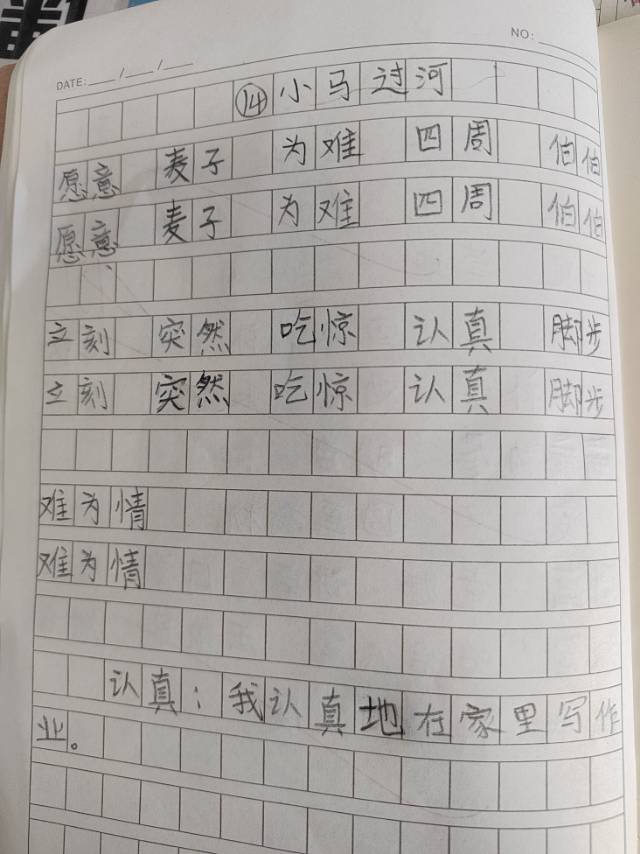 DATE: ___/___/___ NO: ___
⑭小马过河
愿意 麦子 为难 四周 伯伯
愿意 麦子 为难 四周 伯伯
立刻 突然 吃惊 认真 脚步
立刻 突然 吃惊 认真 脚步
难为情
难为情
认真：我认真地在家里写作
业。